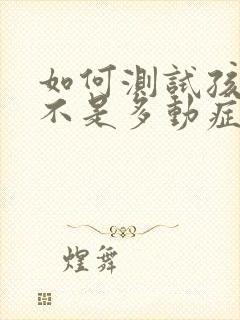 如何測試孩
不是多動症
煌舞